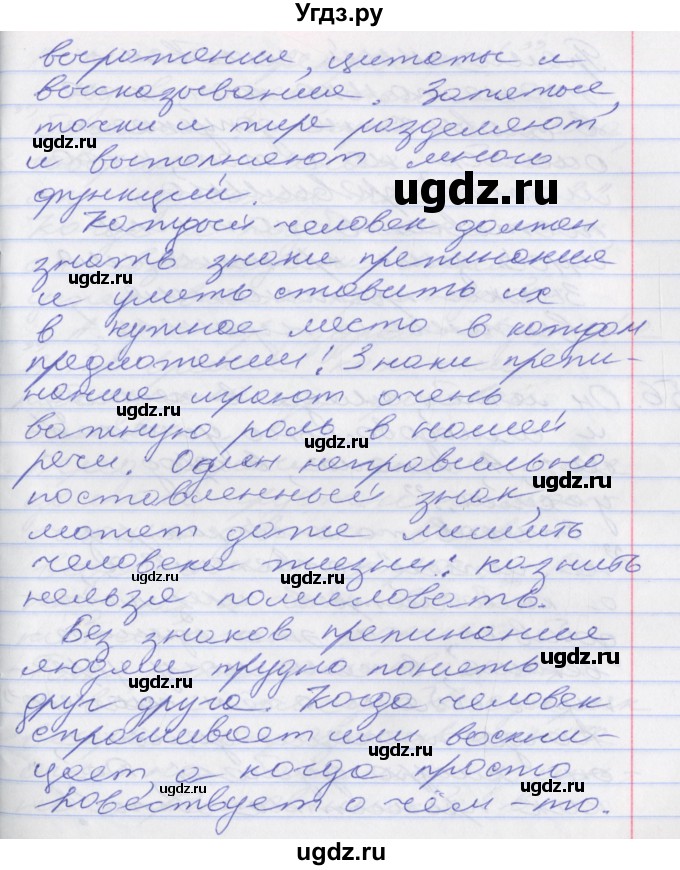 Угдз.ру
выражения, цитаты и
высказывания. Запятые,
точки и тире разделяют
и выполняют много
функций.
ugdz.ru
Каждый человек должен
знать знаки препинания
ugdz.ru
ugdz.ru
и уметь ставить их
в нужное место в каждом
предложении! Знаки препи-
ugdz.ru
нания играют очень
ugdz.ru
важную роль в нашей
ugdz.ru
речи. Один неправильно
ugdz.ru
поставленный знак,
может даже лишить
человека жизни: казнить
ugdz.ru
ugdz.ru
нельзя помиловать.
Без знаков препинания
людям трудно понять
ugdz.ru
ugdz.ru
друг друга. Когда человек
спрашивает или воскли-
ugdz.ru
цает, а когда просто
повествует о чём-то.
ugdz.ru
ugdz.ru